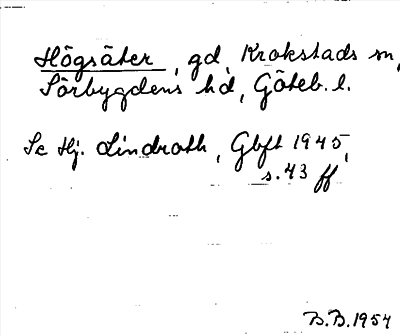 Högsäter, gd, Krokstads sn,
Sörbygdens hd, Göteb. l.
Se Hj. Lindroth, Gbft 1945,
s. 43 ff
B.B. 1954